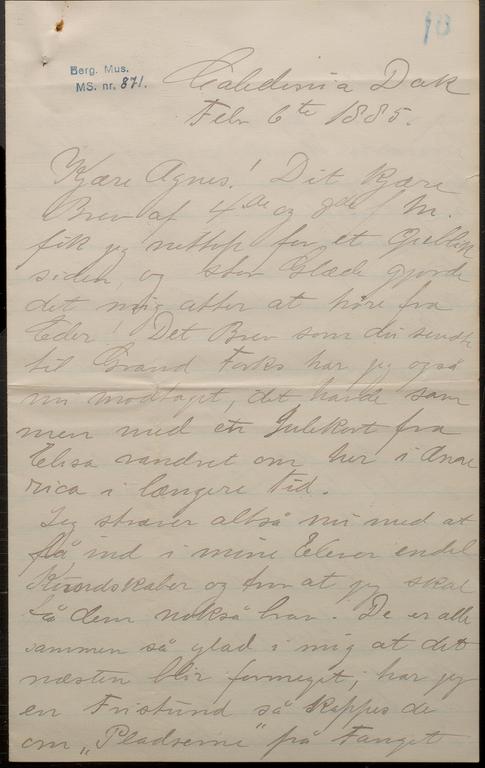 18
Berg. Mus.
MS. nr. 871.
Caledonia Dak
Febr 6te 1885.
Kjære Agnes! Dit kjære
Brev af 4de og 8de f M.
fik jeg nettop for et Øieblik
siden, og stor Glæde gjorde
det mig atter at höre fra
Eder! Det Brev som du sendte
til Grand Forks har jeg også
nu modtaget, det havde sam
men med et Julekort fra
Elisa vandret om her i Ame
rica i længere Tid.
Jeg stræver altså nu med at
få ind i mine Elever endel
Kundskaber og tror at jeg skal
få dem nokså brav. De er alle
sammen så glad i mig at det
næsten blir formeget; har jeg
en Fristund så kappes de
om "Pladserne" på Fanget